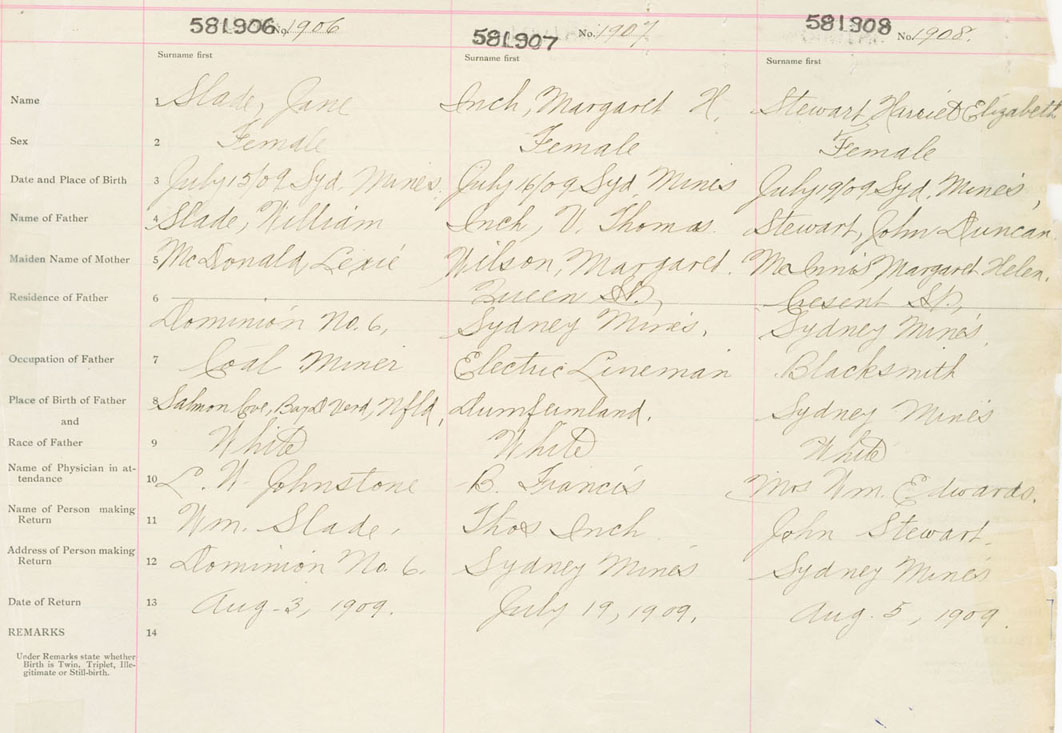 581906 No. 1906 581907 No. 1907 581908 No. 1908.
Surname first Surname first Surname first
Name 1 Slade, Jane Inch, Margaret H. Stewart, Harriet Elizabeth
Sex 2 Female Female Female
Date and Place of Birth 3 July 15/09 Syd. Mines. July 16/09 Syd Mines July 19/09 Syd. Mines,
Name of Father 4 Slade, William Inch, V. Thomas. Stewart, John Duncan.
Maiden Name of Mother 5 McDonald, Lexie Wilson, Margaret. McInnis, Margaret Helen.
Residence of Father 6 Queen St, Cresent St,
Dominion No. 6, Sydney Mines, Sydney Mines,
Occupation of Father 7 Coal Miner Electric Lineman Blacksmith
Place of Birth of Father 8 Salmon Cove, Bay D Verd, Nfld, Dumfermland. Sydney Mines
and
Race of Father 9 White White White
Name of Physician in at-
tendance 10 L. W. Johnstone B. Francis Mrs Wm. Edwards.
Name of Person making
Return 11 Wm. Slade, Thos Inch John Stewart.
Address of Person making
Return 12 Dominion No. 6. Sydney Mines Sydney Mines
Date of Return 13 Aug-3, 1909. July 19, 1909. Aug. 5, 1909.
REMARKS 14
Under Remarks state whether
Birth is Twin, Triplet, Ille-
gitimate or Still-birth.